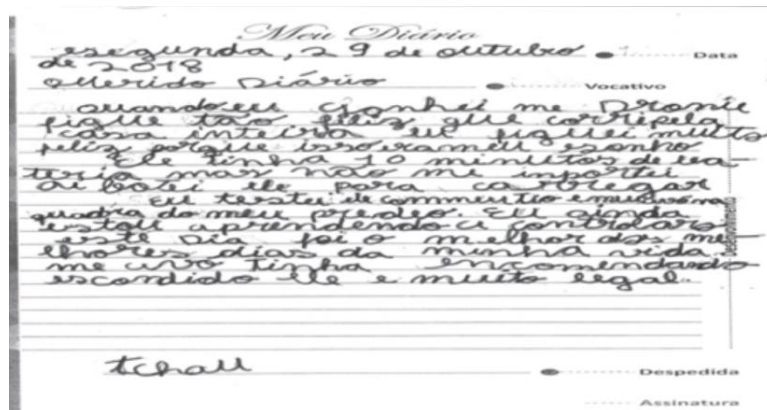 Meu Diário
esegunda, 29 de outubro
de 2018
Data
Querido Diário
Vocativo
quando eu gonhei me Dronie
fique tão feliz que corripela
casa inteira eu fiquei muito
feliz porque issoerameu esonho
Ele tinha 10 minutos de
teria mas não me importei
ai botei ele para carregar
Eu testei ele commeutio na
quadra do meu predeo. Eu ainda
estou aprendendo a controlaro
este Dia foi o melhor dos me
lhores dias da minha vida.
me uvo tinha encomendando
escondido Ele e muito legal.
Desenvolvimento
tchau
Despedida
Assinatura